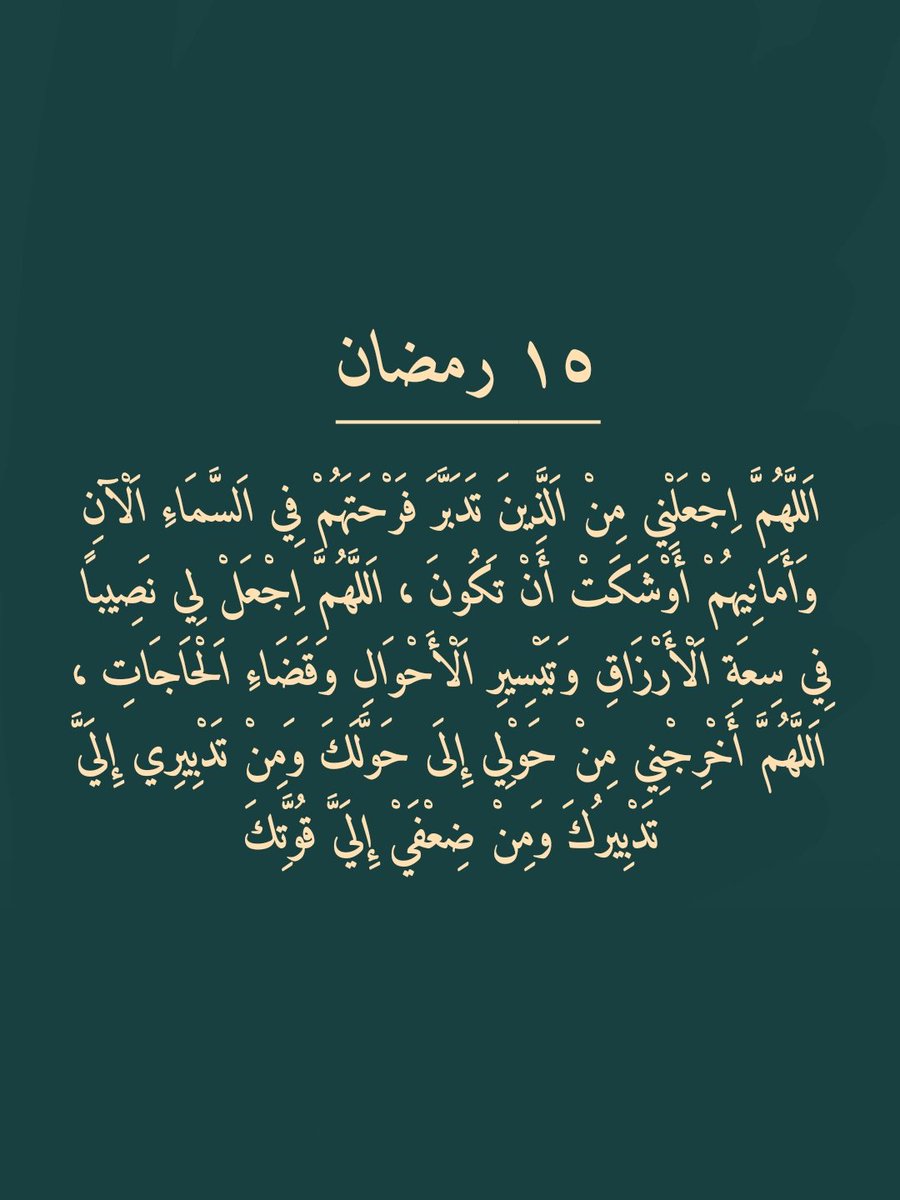 ١٥ رمضان
اَللَّهُمَّ اِجْعَلْنِي مِنْ اَلَّذِينَ تَدَبَّرَ فَرْحَتَهُمْ فِي اَلسَّمَاءِ اَلْآنِ
وَأَمَانِيهِمْ أَوْشَكَتْ أَنْ تَكُونَ ، اَللَّهُمَّ اِجْعَلْ لِي نَصِيباً
فِي سِعَةِ اَلْأَرْزَاقِ وَتَيْسِيرِ اَلْأَحْوَالِ وَقَضَاءِ اَلْحَاجَاتِ ،
اَللَّهُمَّ أَخْرِجْنِي مِنْ حَوْلِي إِلَى حَوَلَّكَ وَمِنْ تَدْبِيرِي إِلَيَّ
تَدْبِيرُكَ وَمِنْ ضِعْفَيْ إِلَيَّ قُوَّتِكَ